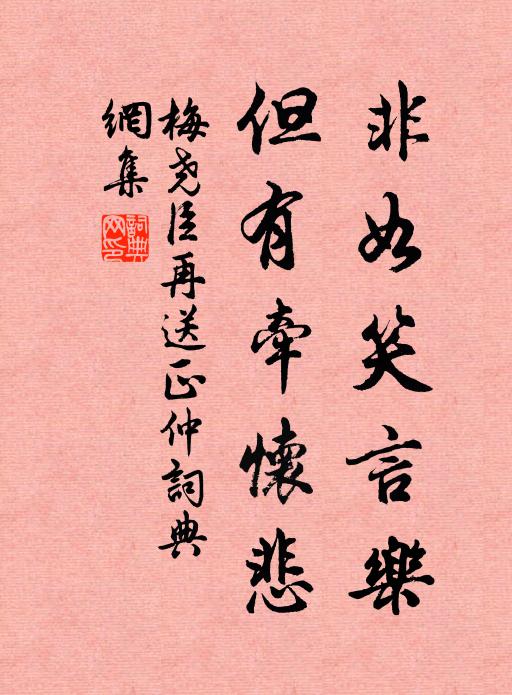 非如笑言樂
但有牽懷悲
梅堯臣再送正仲詞典
網集
詞典網印